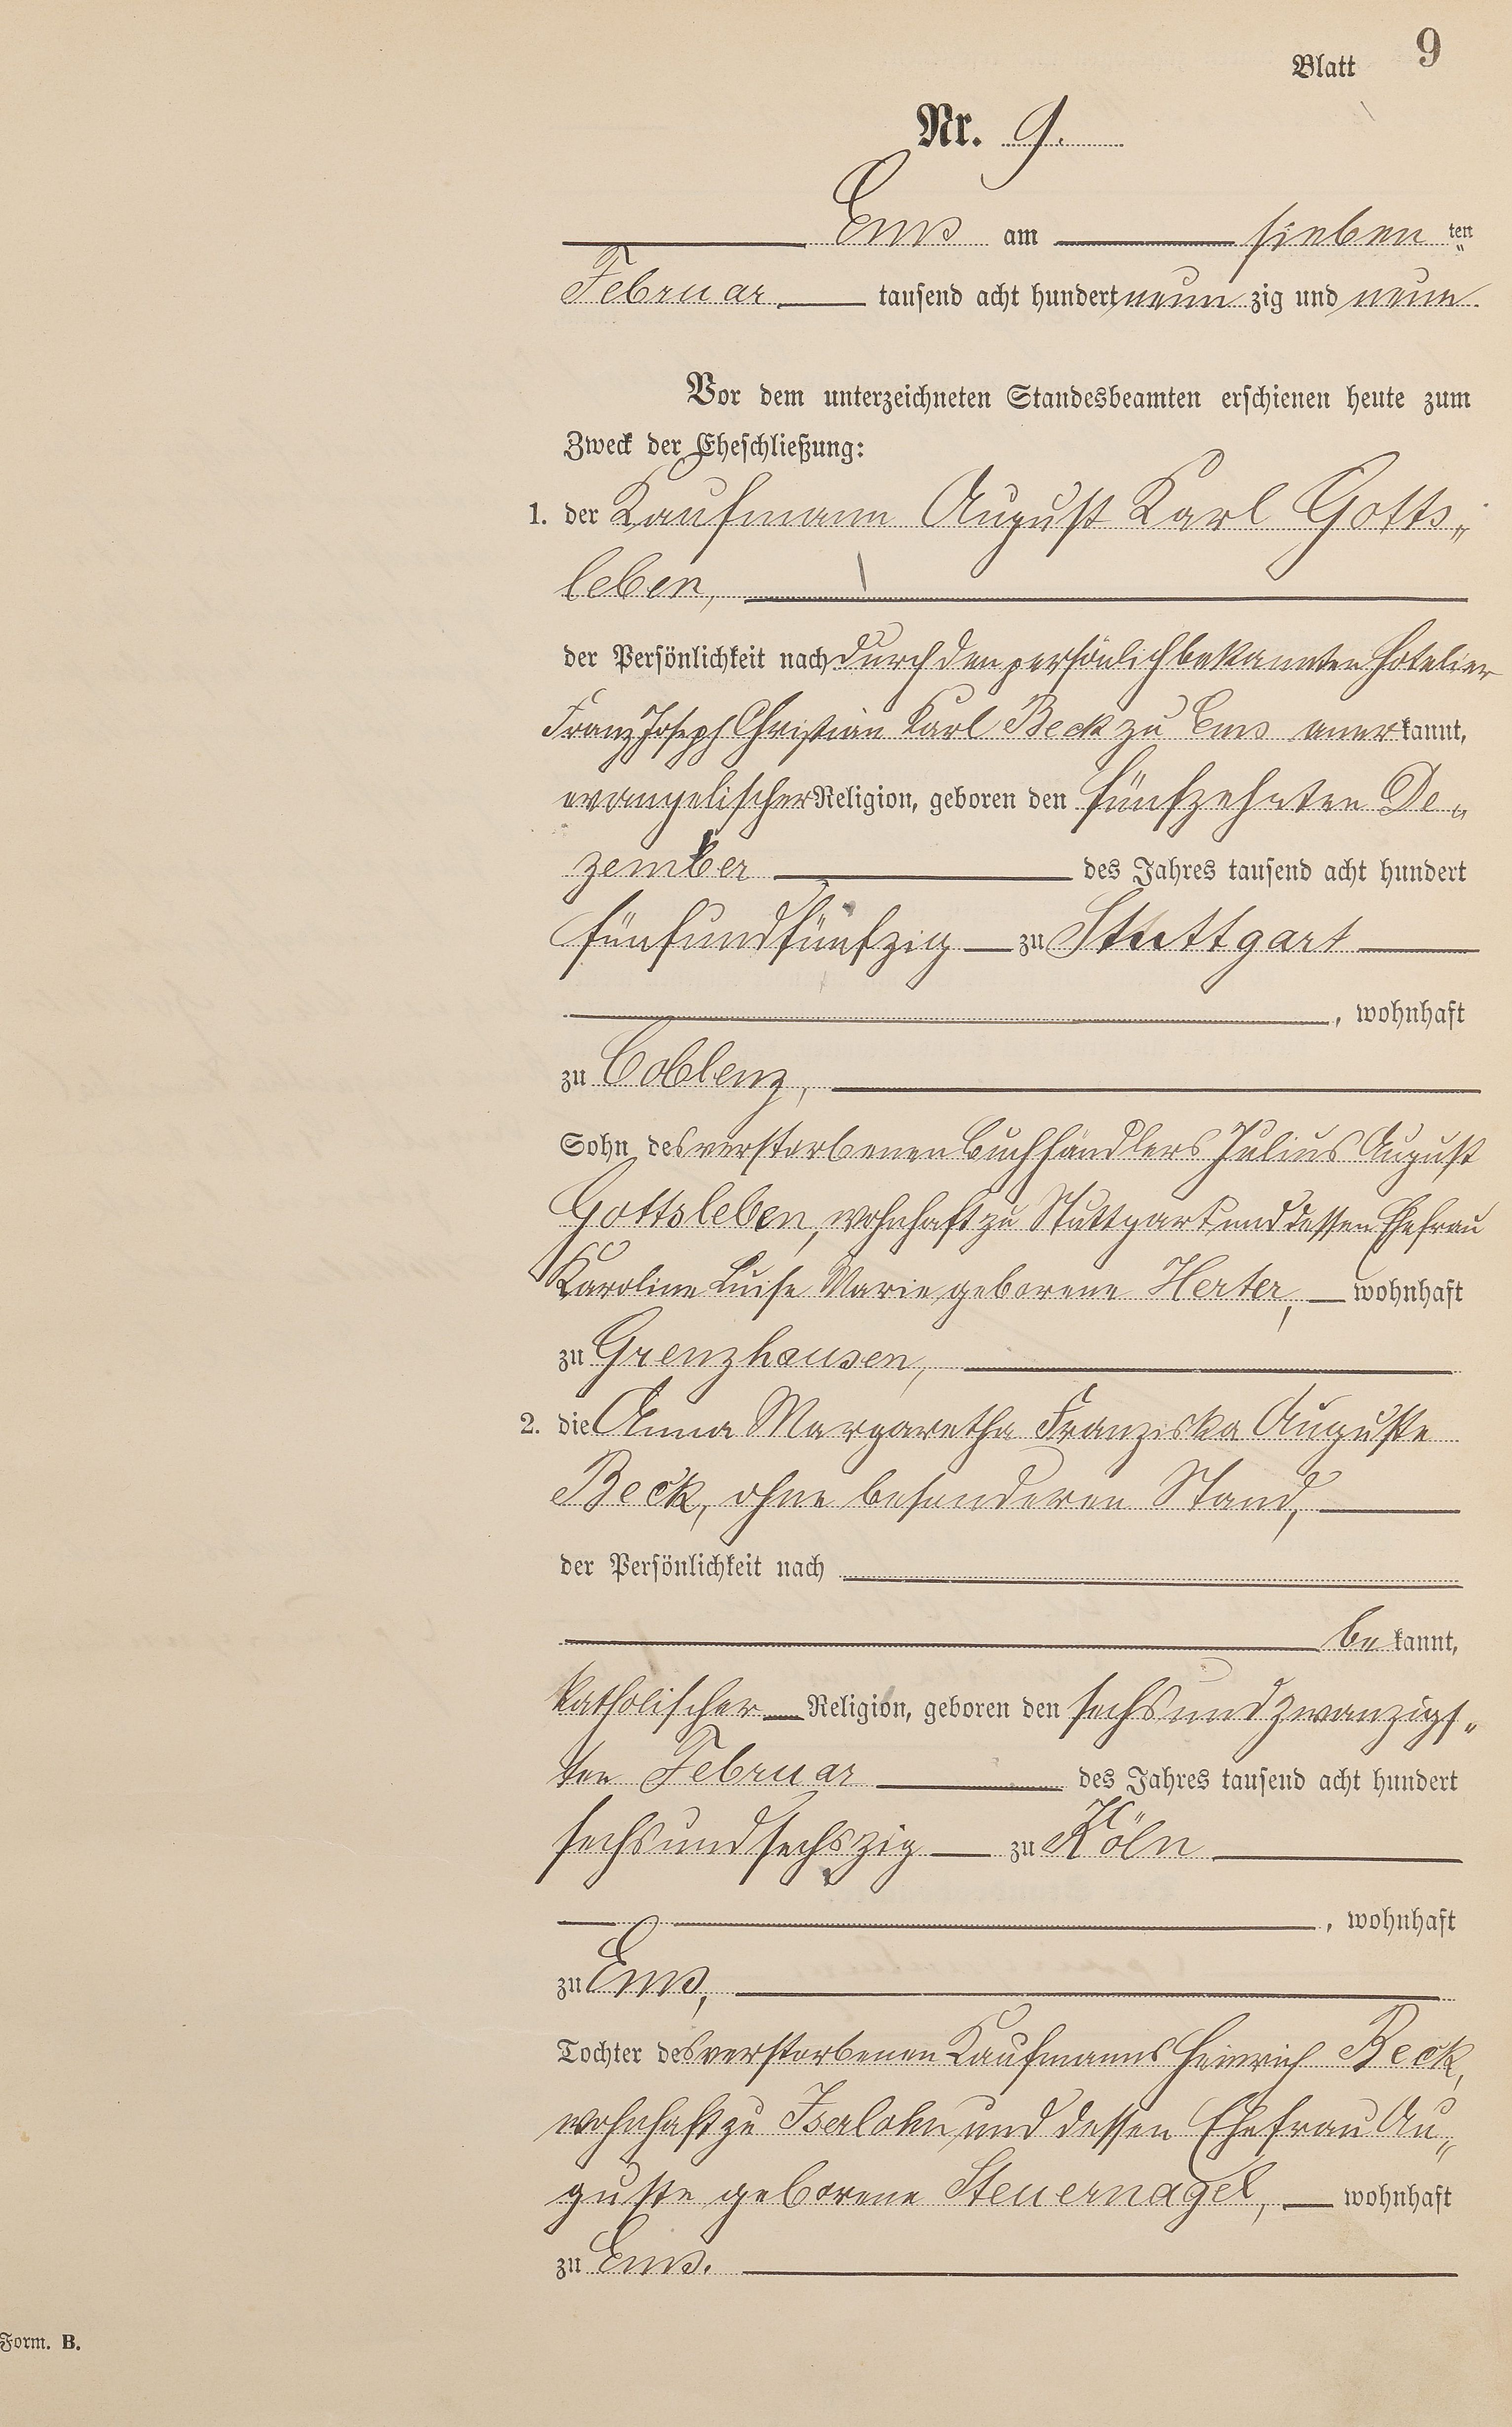 Blatt 9
Nr. 9.
Ems am sieben ten
Februar tausend acht hundert neun zig und neun.
Vor dem unterzeichneten Standesbeamten erschienen heute zum
Zweck der Eheschließung:
1. der Kaufmann August Karl Gotts„
leben,
der Persönlichkeit nach durch den persönlich bekannten Hotelier
Franz Joseph Christian Karl Beck zu Ems anerkannt,
evangelischer Religion, geboren den fünfzehnten De„
zember des Jahres tausend acht hundert
fünfundfünfzig zu Stuttgart
, wohnhaft
zu Coblenz,
Sohn des verstorbenen Buchhändlers Julius August
Gottsleben, wohnhaft zu Stuttgart und dessen Ehefrau
Karoline Luise Marie geborene Herter, wohnhaft
zu Grenzhausen,
2. die Anna Margaretha Franziska Auguste
Beck, ohne besonderen Stand,
der Persönlichkeit nach
bekannt,
katholischer Religion, geboren den sechsundzwanzigs„
ten Februar des Jahres tausend acht hundert
sechsundsechszig zu Köln
, wohnhaft
zu Ems,
Tochter des verstorbenen Kaufmanns Heinrich Beck,
wohnhaft zu Iserlohn und dessen Ehefrau Au„
guste geborene Steuernagel, wohnhaft
zu Ems.
Form. B.